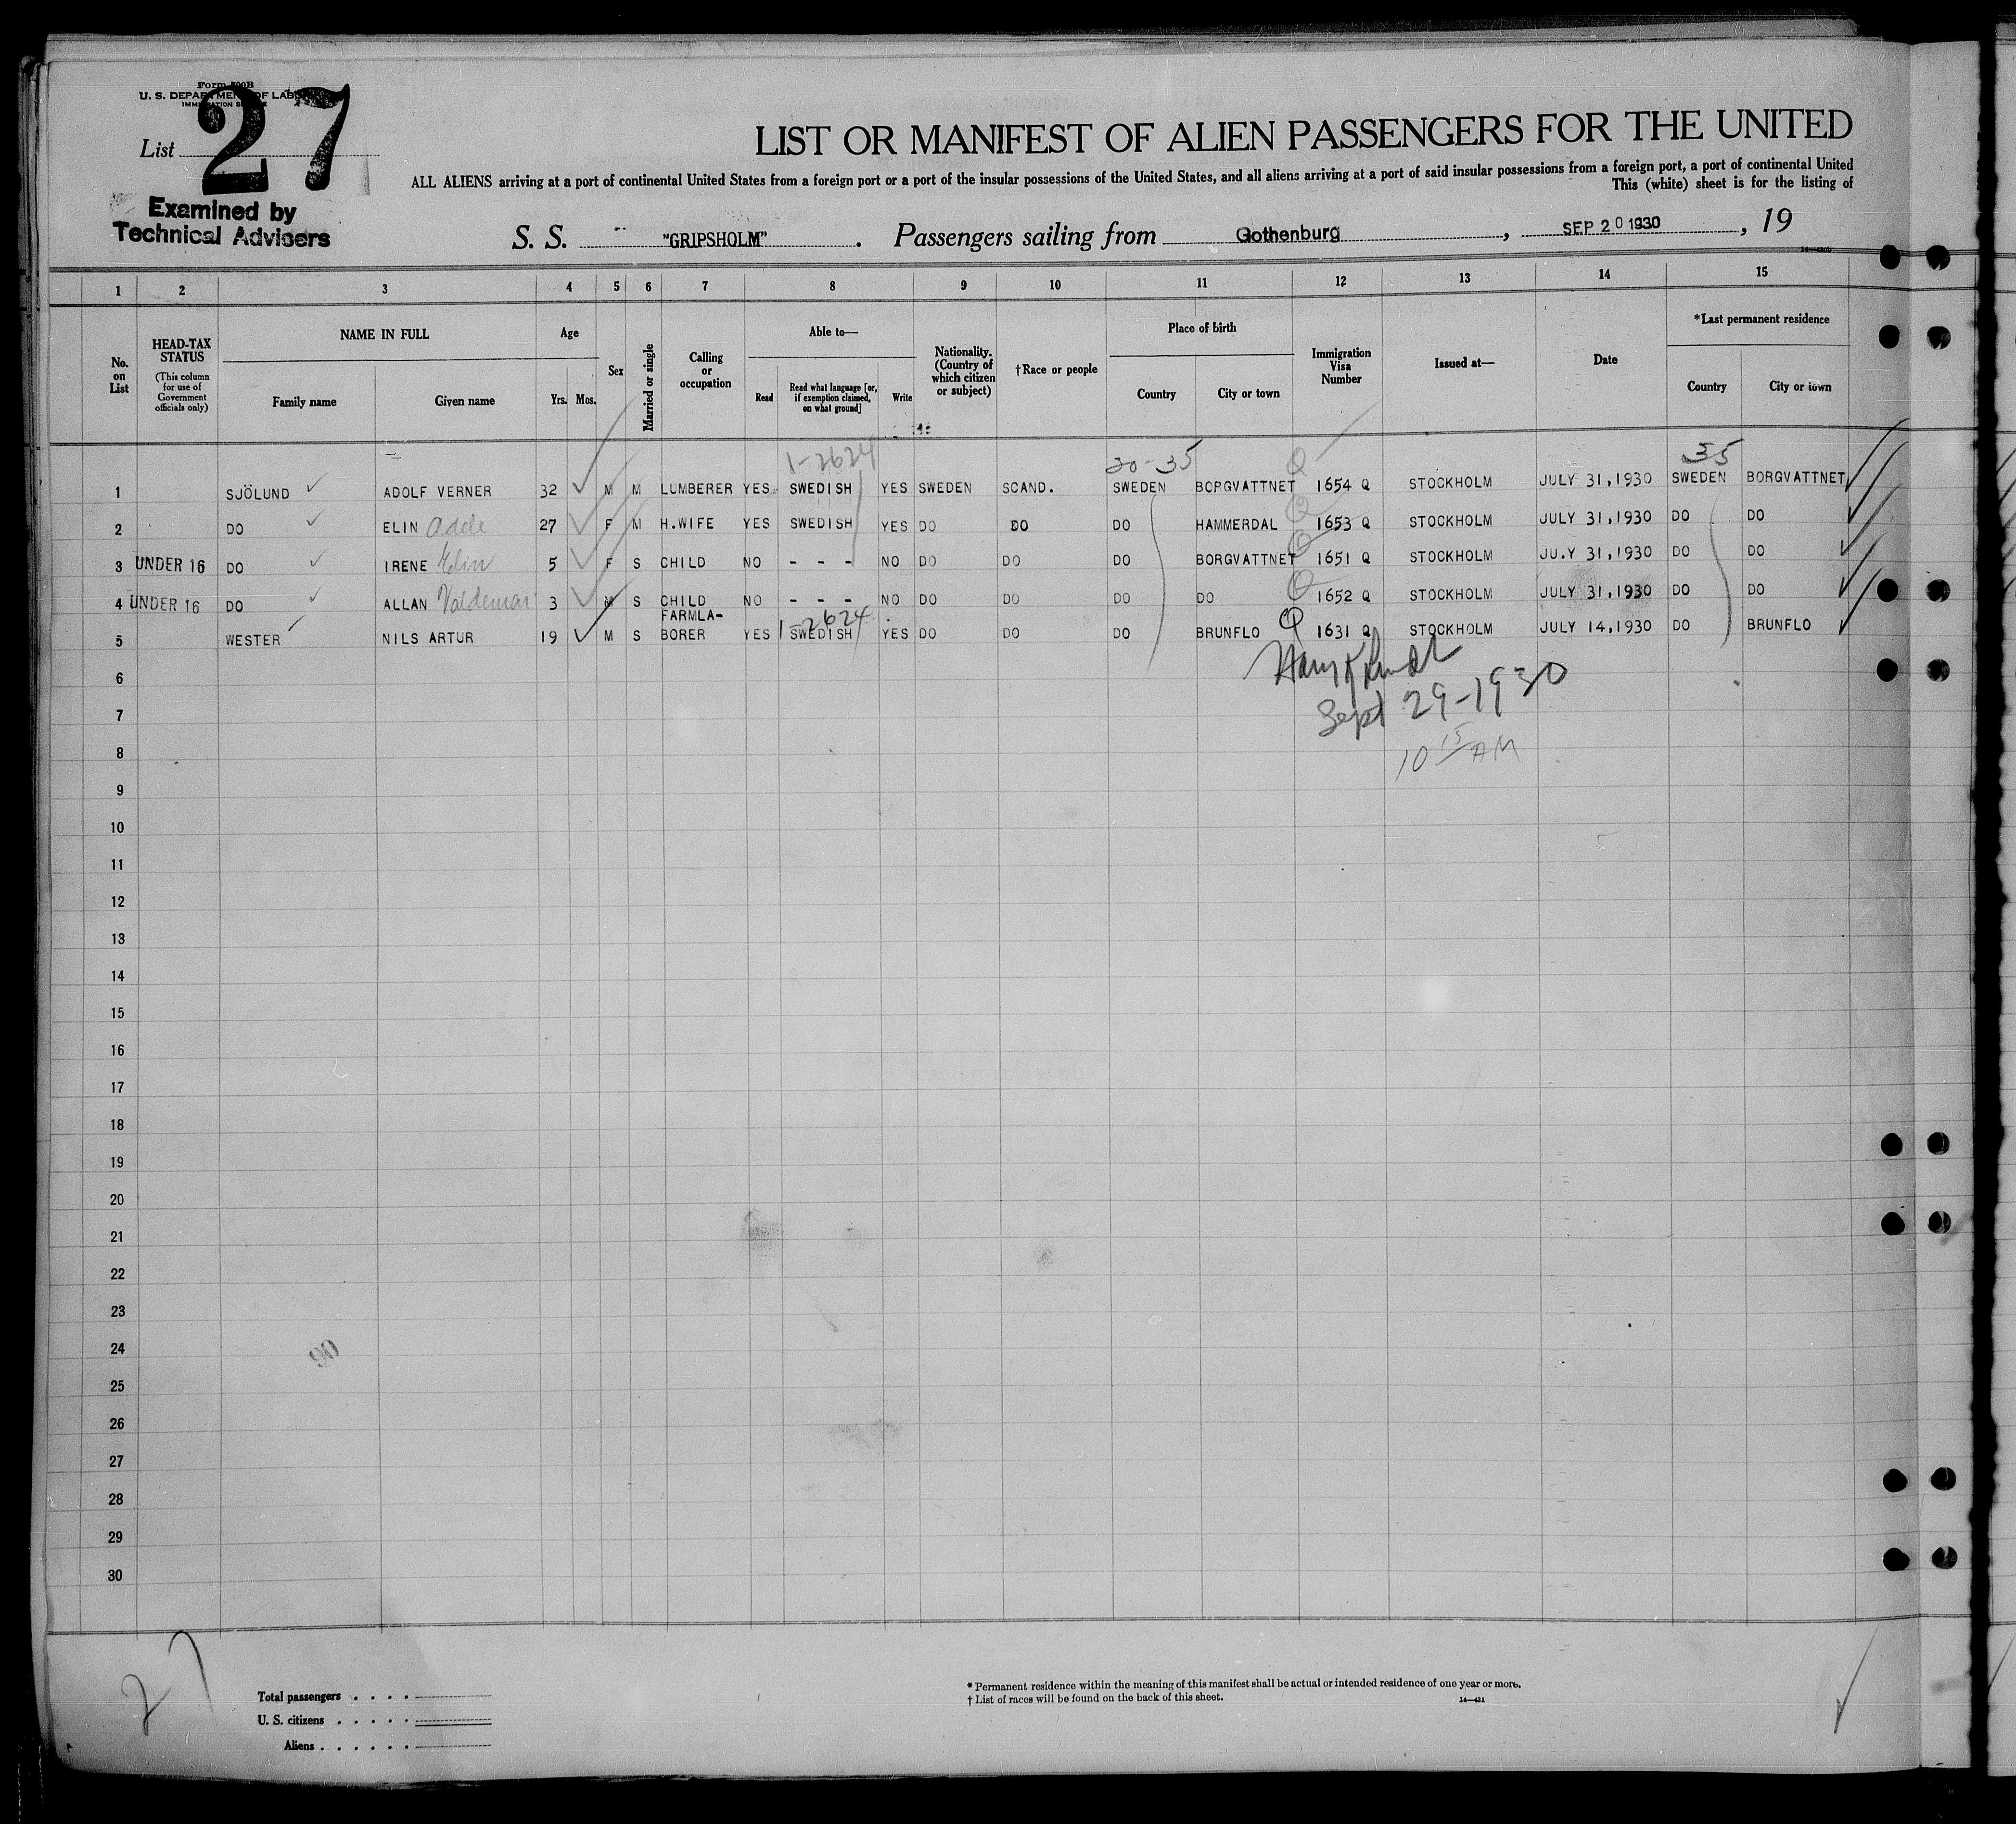 Form 500B
U. S. DEPARTMENT OF LABOR
IMMIGRATION SERVICE
List 27
Examined by
Technical Advisers
LIST OR MANIFEST OF ALIEN PASSENGERS FOR THE UNITED
ALL ALIENS arriving at a port of continental United States from a foreign port or a port of the insular possessions of the United States, and all aliens arriving at a port of said insular possessions from a foreign port, a port of continental United
This (white) sheet is for the listing of
S. S. "GRIPSHOLM" . Passengers sailing from Gothenburg , SEP 20 1930 , 19
1 2 3 4 5 6 7 8 9 10 11 12 13 14 15
No. on List
HEAD-TAX STATUS (This column for use of Government officials only)
NAME IN FULL
Family name Given name
Age
Yrs. Mos.
Sex
Married or single
Calling or occupation
Able to—
Read
Read what language [or, if exemption claimed, on what ground]
Write
Nationality. (Country of which citizen or subject)
†Race or people
Place of birth
Country City or town
Immigration Visa Number
Issued at—
Date
*Last permanent residence
Country City or town
1-2624 20-35 35
1 SJÖLUND ADOLF VERNER 32 M M LUMBERER YES SWEDISH YES SWEDEN SCAND. SWEDEN BORGVATTNET Q 1654 Q STOCKHOLM JULY 31,1930 SWEDEN BORGVATTNET
2 DO ELIN Adele 27 F M H.WIFE YES SWEDISH YES DO DO DO HAMMERDAL Q 1653 Q STOCKHOLM JULY 31,1930 DO DO
3 UNDER 16 DO IRENE Elin 5 F S CHILD NO - - - NO DO DO DO BORGVATTNET Q 1651 Q STOCKHOLM JU.Y 31,1930 DO DO
4 UNDER 16 DO ALLAN Valdemar 3 M S CHILD NO - - - NO DO DO DO DO Q 1652 Q STOCKHOLM JULY 31,1930 DO DO
1-2624
5 WESTER NILS ARTUR 19 M S FARMLA-BORER YES SWEDISH YES DO DO DO BRUNFLO Q 1631 Q STOCKHOLM JULY 14,1930 DO BRUNFLO
6
Sept 29-1930
7
10 15 AM
8
9
10
11
12
13
14
15
16
17
18
19
20
21
22
23
24
25
26
27
28
29
30
27
Total passengers . . . .
U. S. citizens . . . . .
Aliens . . . . . .
* Permanent residence within the meaning of this manifest shall be actual or intended residence of one year or more.
† List of races will be found on the back of this sheet.
14—431